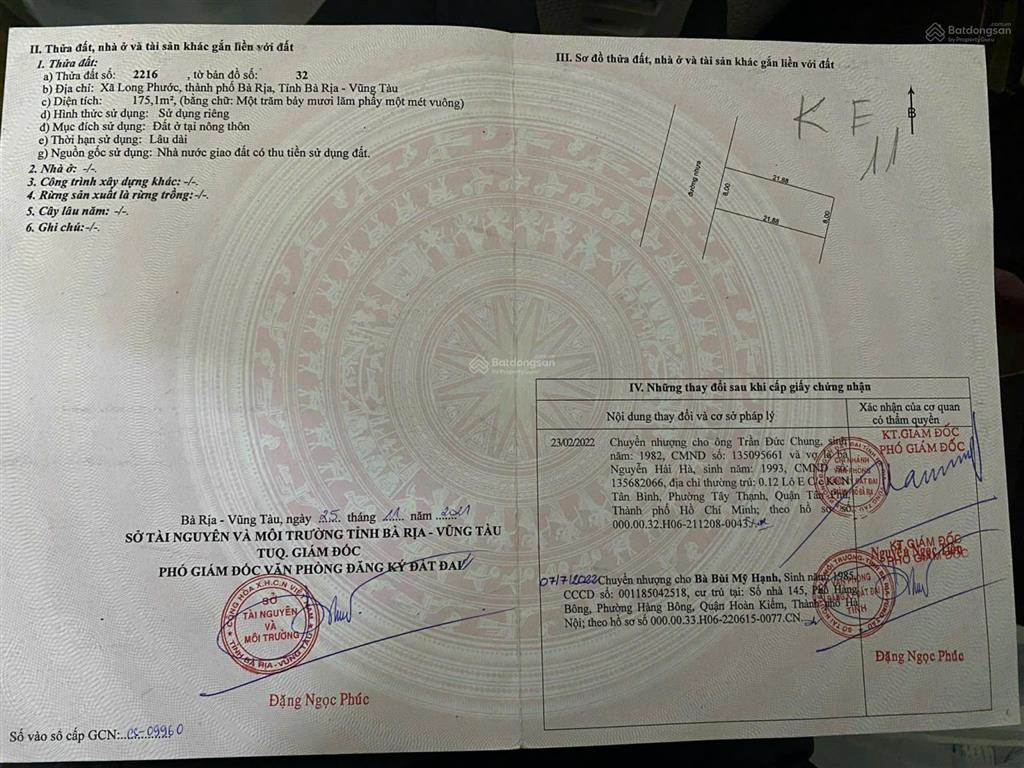 II. Thửa đất, nhà ở và tài sản khác gắn liền với đất
1. Thửa đất:
a) Thửa đất số: 2216 , tờ bản đồ số: 32
b) Địa chỉ: Xã Long Phước, thành phố Bà Rịa, Tỉnh Bà Rịa - Vũng Tàu
c) Diện tích: 175,1m², (bằng chữ: Một trăm bảy mươi lăm phẩy một mét vuông)
d) Hình thức sử dụng: Sử dụng riêng
đ) Mục đích sử dụng: Đất ở tại nông thôn
e) Thời hạn sử dụng: Lâu dài
g) Nguồn gốc sử dụng: Nhà nước giao đất có thu tiền sử dụng đất.
2. Nhà ở: -/-.
3. Công trình xây dựng khác: -/-.
4. Rừng sản xuất là rừng trồng: -/-.
5. Cây lâu năm: -/-.
6. Ghi chú: -/-.
Bà Rịa - Vũng Tàu, ngày 25 tháng 11 năm 2021
SỞ TÀI NGUYÊN VÀ MÔI TRƯỜNG TỈNH BÀ RỊA - VŨNG TÀU
TUQ. GIÁM ĐỐC
PHÓ GIÁM ĐỐC VĂN PHÒNG ĐĂNG KÝ ĐẤT ĐAI
CỘNG HÒA X.H.C.N VIỆT NAM
SỞ
TÀI NGUYÊN
VÀ
MÔI TRƯỜNG
TỈNH BÀ RỊA - VŨNG TÀU
Đặng Ngọc Phúc
Số vào sổ cấp GCN: CS-09960
III. Sơ đồ thửa đất, nhà ở và tài sản khác gắn liền với đất
K E 11
B
đường nhựa
8,00
21,88
21,88
8,00
IV. Những thay đổi sau khi cấp giấy chứng nhận
Nội dung thay đổi và cơ sở pháp lý
Xác nhận của cơ quan
có thẩm quyền
23/02/2022 Chuyển nhượng cho ông Trần Đức Chung, sinh
năm: 1982, CMND số: 135095661 và vợ là bà
Nguyễn Hải Hà, sinh năm: 1993, CMND số
135682066, địa chỉ thường trú: 0.12 Lô E C/c KCN
Tân Bình, Phường Tây Thạnh, Quận Tân Phú
Thành phố Hồ Chí Minh; theo hồ sơ số
000.00.32.H06-211208-0043
KT.GIÁM ĐỐC
PHÓ GIÁM ĐỐC
07/7/2022 Chuyển nhượng cho Bà Bùi Mỹ Hạnh, Sinh năm 1985,
CCCD số: 001185042518, cư trú tại: Số nhà 145, Phố Hàng
Bông, Phường Hàng Bông, Quận Hoàn Kiếm, Thành phố Hà
Nội; theo hồ sơ số 000.00.33.H06-220615-0077.CN
KT GIÁM ĐỐC
PHÓ GIÁM ĐỐC
Đặng Ngọc Phúc
Batdongsan.com.vn
by PropertyGuru
Batdongsan.com.vn
by PropertyGuru